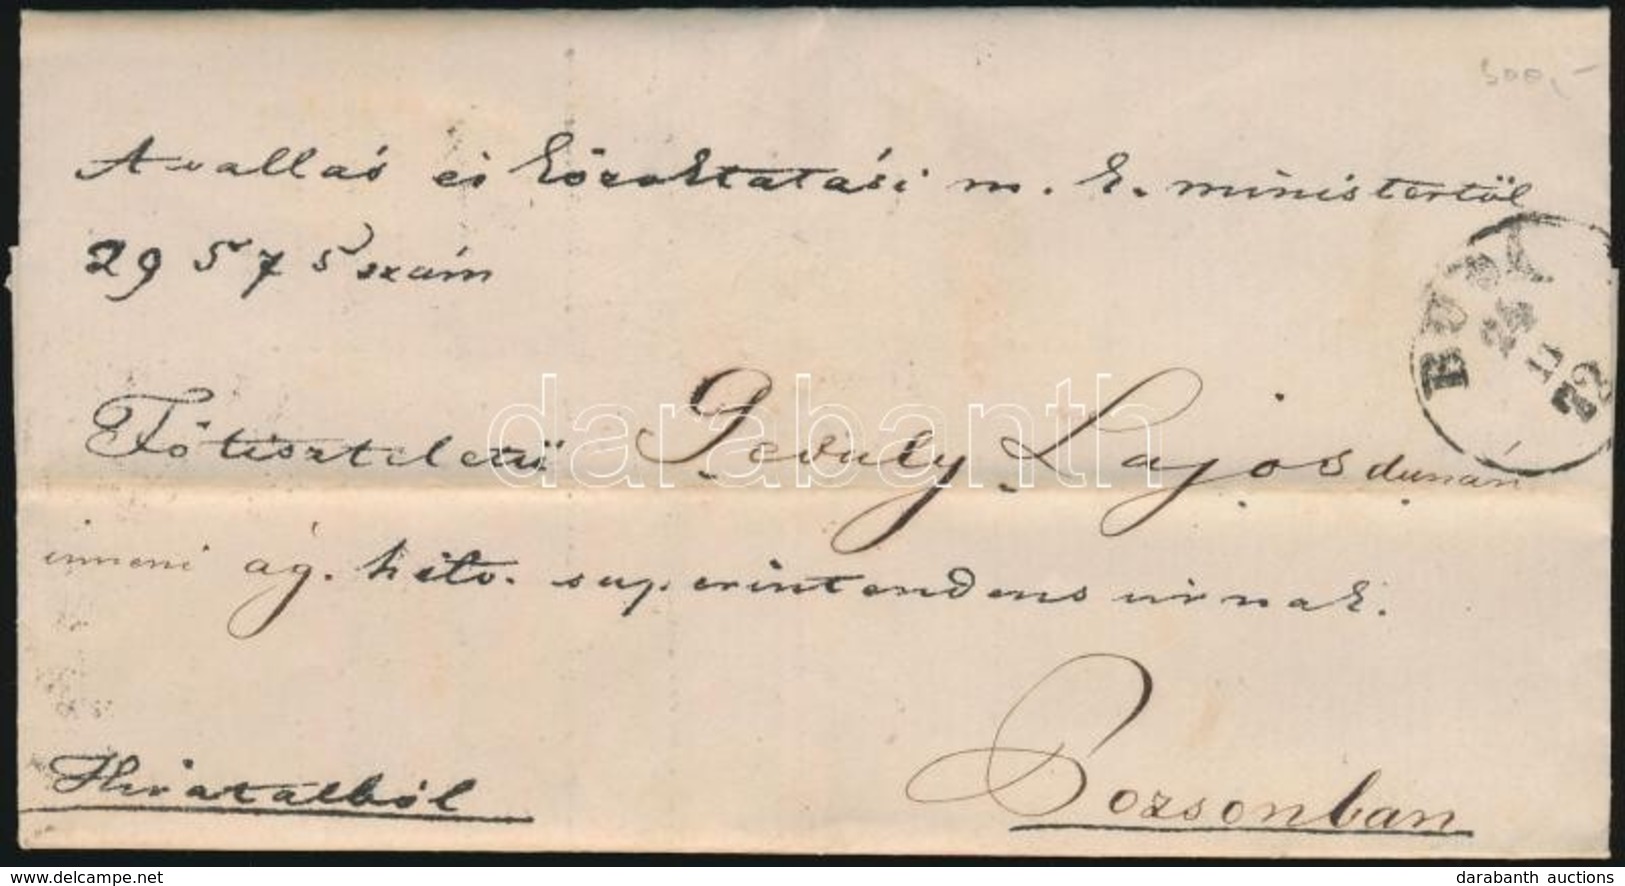 500,-
A vallás és közoktatási m. k. ministertöl
29575 szám
BUDA
24
11
72
Főtiszteletü Geduly Lajos dunán
inneni ág. hitv. superintendens urnak.
Hivatalból
Pozsonban
darabanth
www.delcampe.net
darabanth auctions